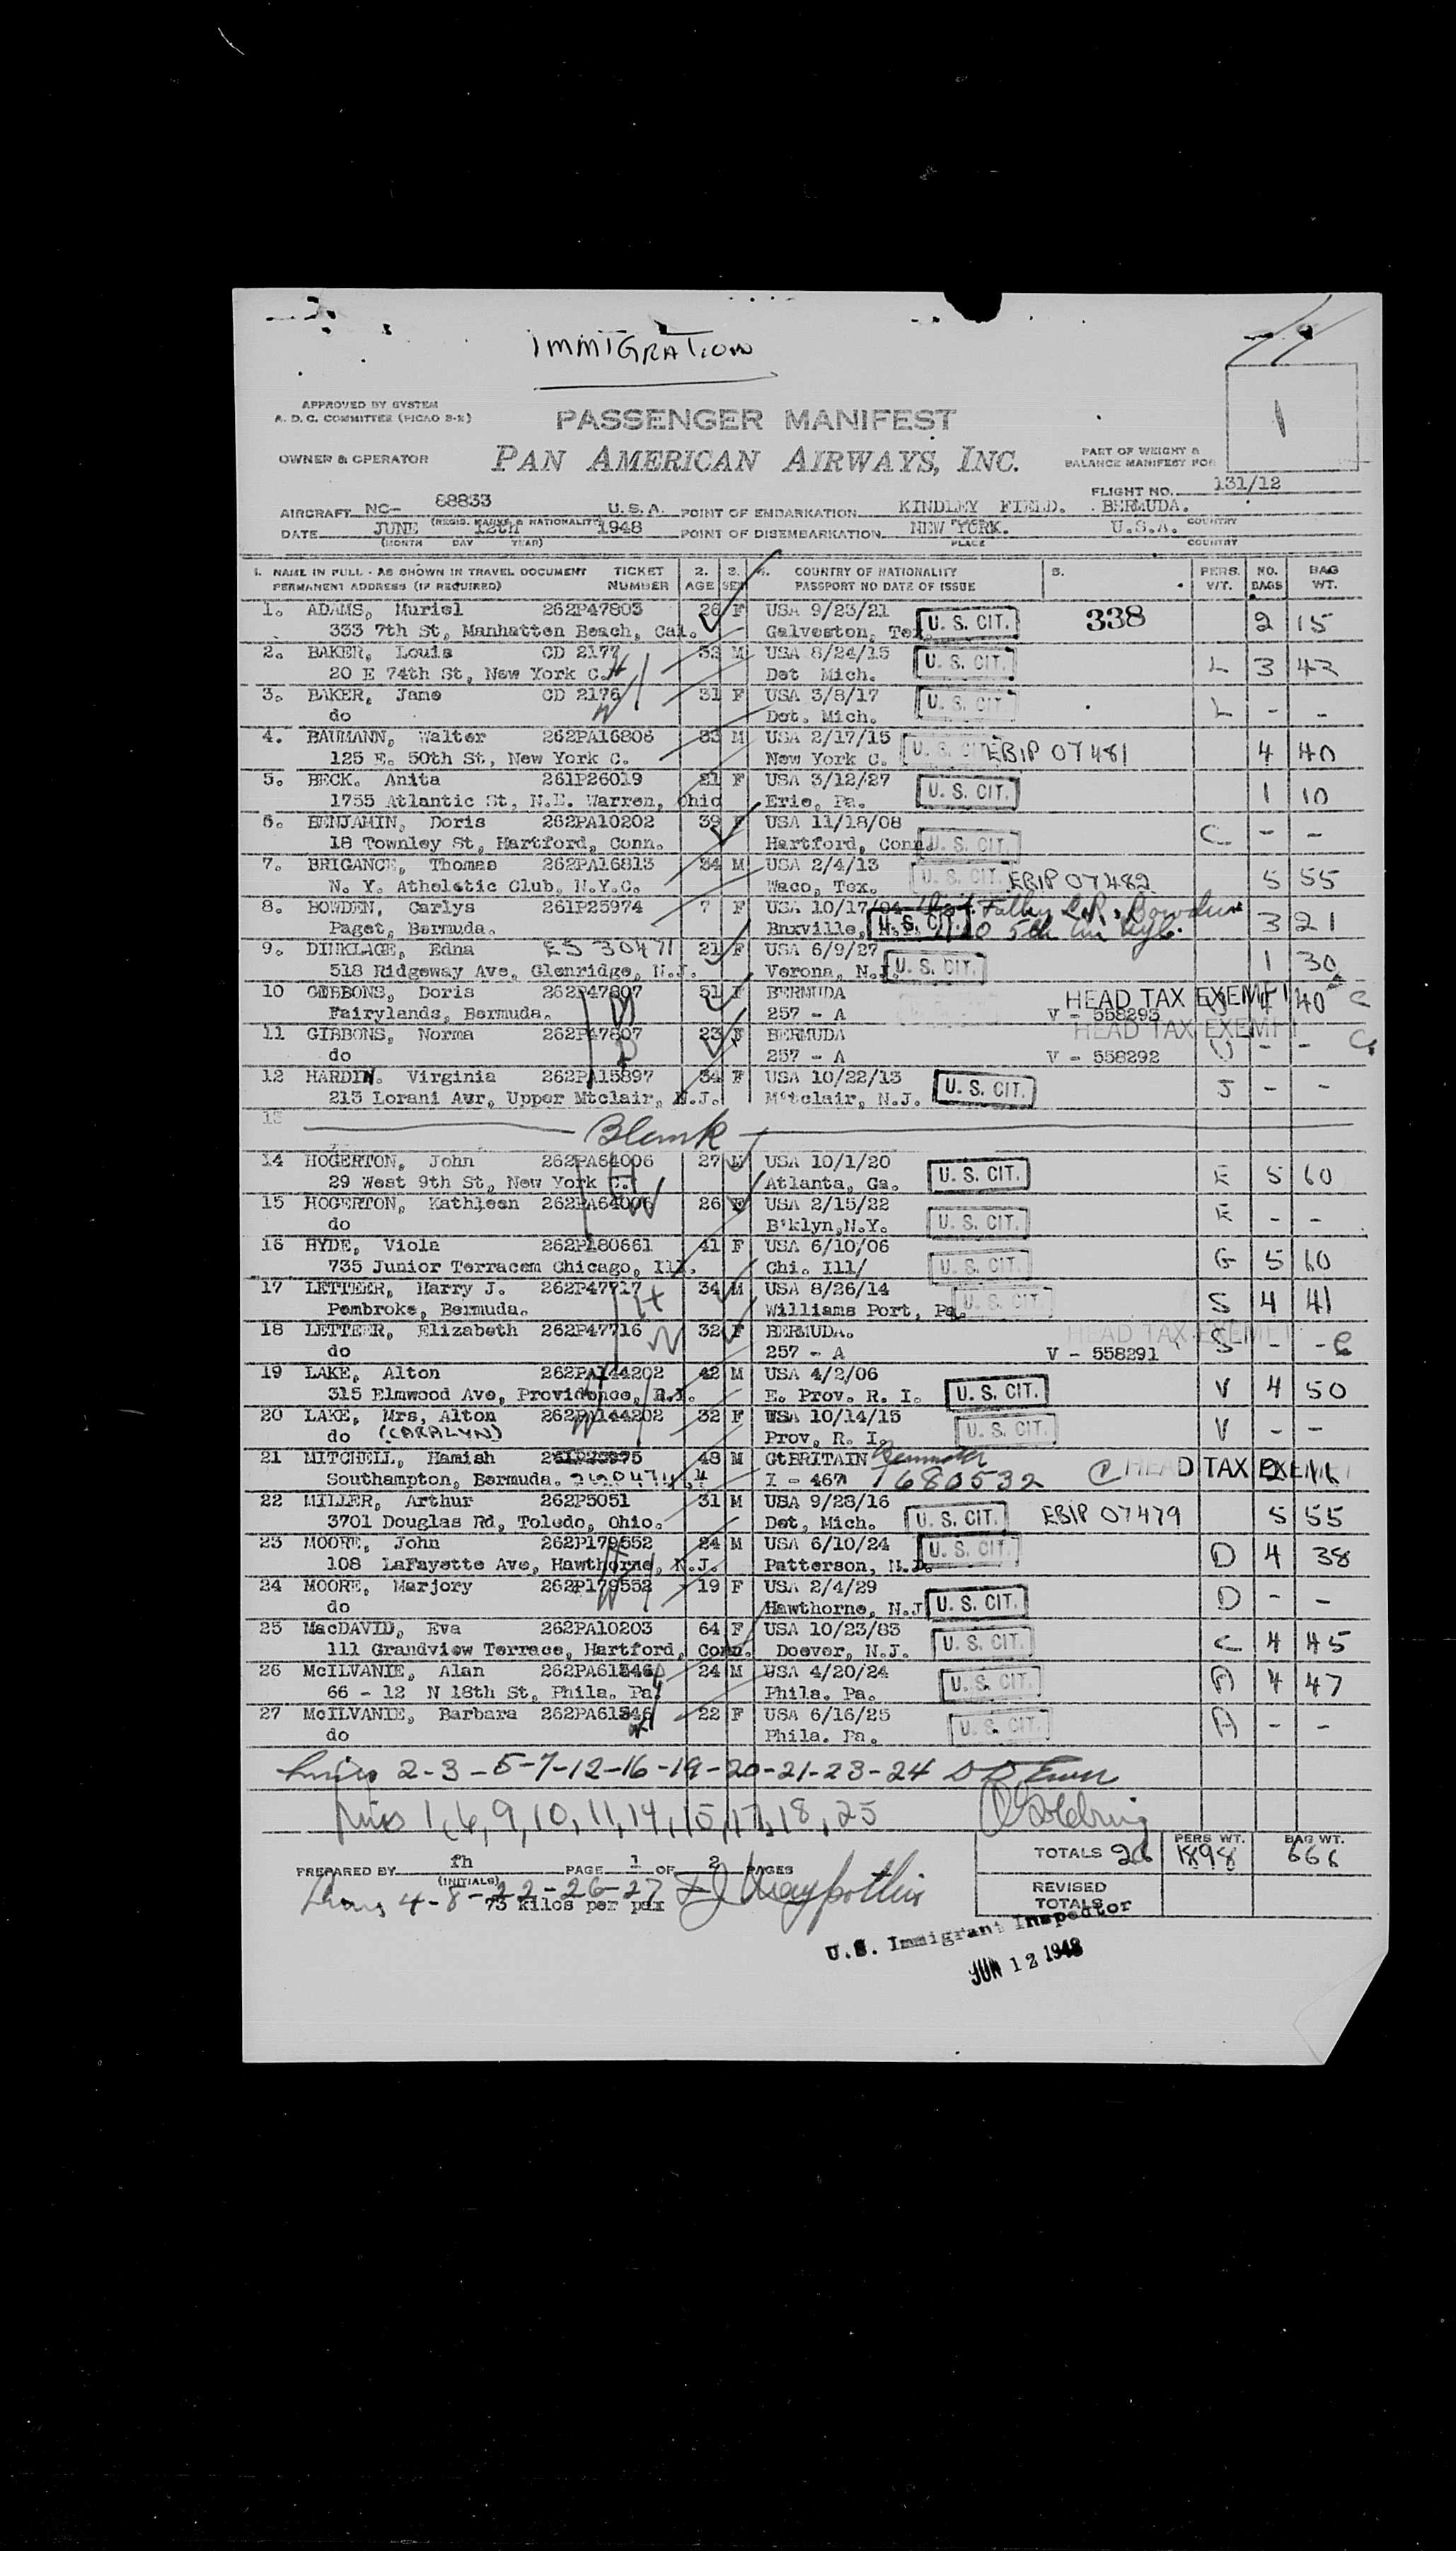 IMMIGRATION
APPROVED BY SYSTEM
A. D. C. COMMITTEE (PICAO 2-2)
PASSENGER MANIFEST
1
OWNER & OPERATOR
PAN AMERICAN AIRWAYS, INC.
PART OF WEIGHT &
BALANCE MANIFEST FOR
FLIGHT NO. 131/12
AIRCRAFT NC- 88833 U.S.A. POINT OF EMBARKATION KINDLEY FIELD. BERMUDA.
(REGIS. MARKS & NATIONALITY) PLACE COUNTRY
DATE JUNE 12th 1948 POINT OF DISEMBARKATION NEW YORK. U.S.A.
(MONTH DAY YEAR) PLACE COUNTRY
1. NAME IN FULL - AS SHOWN IN TRAVEL DOCUMENT TICKET 2. 3. 4. COUNTRY OF NATIONALITY 5. PERS. NO. BAG
PERMANENT ADDRESS (IF REQUIRED) NUMBER AGE SEX PASSPORT NO DATE OF ISSUE WT. BAGS WT.
1. ADAMS, Muriel 262P47803 26 F USA 9/23/21 U. S. CIT. 338 2 15
333 7th St, Manhatten Beach, Cal. Galveston, Tex.
2. BAKER, Louis CD 2177 M USA 8/24/15 U. S. CIT. L 3 42
20 E 74th St, New York C. Det Mich.
3. BAKER, Jane CD 2176 31 F USA 3/8/17 U. S. CIT. L - -
do Det. Mich.
4. BAUMANN, Walter 262PA16806 33 M USA 2/17/15 U. S. CIT. EBIP 07481 4 40
125 E. 50th St, New York C. New York C.
5. BECK. Anita 261P26019 21 F USA 3/12/27 U. S. CIT. 1 10
1755 Atlantic St, N.E. Warren, Ohio Erie, Pa.
6. BENJAMIN, Doris 262PA10202 39 F USA 11/18/08 U. S. CIT. C - -
18 Townley St, Hartford, Conn. Hartford, Conn.
7. BRIGANCE, Thomas 262PA16813 34 M USA 2/4/13 U. S. CIT. EBIP 07482 5 55
N. Y. Atheletic Club, N.Y.C. Waco, Tex.
8. BOWDEN, Carlys 261P25974 7 F USA 10/17/ Father 3 21
Paget, Bermuda. Bnxville, U. S. CIT. 5th
9. DINKLAGE, Edna ES 30471 21 F USA 6/9/27 U. S. CIT. 1 30
518 Ridgeway Ave, Glenridge, N.J. Verona, N.J.
10 GIBBONS, Doris 262P47807 51 F BERMUDA HEAD TAX EXEMPT 40 C
Fairylands, Bermuda. 257 - A V - 558293
11 GIBBONS, Norma 262P47807 23 F BERMUDA HEAD TAX EXEMPT - - C.
do 257 - A V - 558292
12 HARDIN. Virginia 262PA15897 34 F USA 10/22/13 U. S. CIT. J - -
213 Lorani Avr, Upper Mtclair, N.J. M'tclair, N.J.
13 Blank
14 HOGERTON, John 262PA64006 27 M USA 10/1/20 U. S. CIT. E 5 60
29 West 9th St, New York C. Atlanta, Ga.
15 HOGERTON, Kathleen 262PA64006 26 F USA 2/15/22 U. S. CIT. E - -
do B'klyn,N.Y.
16 HYDE, Viola 262P180661 41 F USA 6/10/06 U. S. CIT. G 5 60
735 Junior Terracem Chicago, Ill. Chi. Ill/
17 LETTEER, Harry J. 262P47717 34 M USA 8/26/14 U. S. CIT. S 4 41
Pembroke, Bermuda. Williams Port, Pa.
18 LETTEER, Elizabeth 262P47716 32 F BERMUDA. HEAD TAX EXEMPT S - - C
do 257 - A V - 558291
19 LAKE, Alton 262PA144202 42 M USA 4/2/06 U. S. CIT. V 4 50
315 Elmwood Ave, Providence, R.I. E. Prov. R. I.
20 LAKE, Mrs, Alton 262PA144202 32 F USA 10/14/15 U. S. CIT. V - -
do (CARALYN) Prov, R. I.
21 MITCHELL, Hamish 48 M GtBRITAIN Bermuda HEAD TAX EXEMPT
Southampton, Bermuda. I - 467 1680532
22 MILLER, Arthur 262P5051 31 M USA 9/28/16 U. S. CIT. EBIP 07479 5 55
3701 Douglas Rd, Toledo, Ohio. Det, Mich.
23 MOORE, John 262P179552 24 M USA 6/10/24 U. S. CIT. D 4 38
108 LaFayette Ave, Hawthorne, N.J. Patterson, N.J.
24 MOORE, Marjory 262P179552 19 F USA 2/4/29 U. S. CIT. D - -
do Hawthorne, N.J
25 MacDAVID, Eva 262PA10203 64 F USA 10/23/83 U. S. CIT. C 4 45
111 Grandview Terrace, Hartford, Conn. Doever, N.J.
26 McILVANIE, Alan 24 M USA 4/20/24 U. S. CIT. A 4 47
66 - 12 N 18th St, Phila. Pa. Phila. Pa.
27 McILVANIE, Barbara 22 F USA 6/16/25 U. S. CIT. A - -
do Phila. Pa.
2-3-5-7-12-16-19-20-21-23-24
1,6,9,10,11,14,15,17,18,25
TOTALS 26 PERS WT. 1898 BAG WT. 666
PREPARED BY fh PAGE 1 OF 2 PAGES
(INITIALS)
4-8-22-26-27
75 kilos per pax
REVISED
TOTALS
U.S. Immigrant Inspector
JUN 12 1948